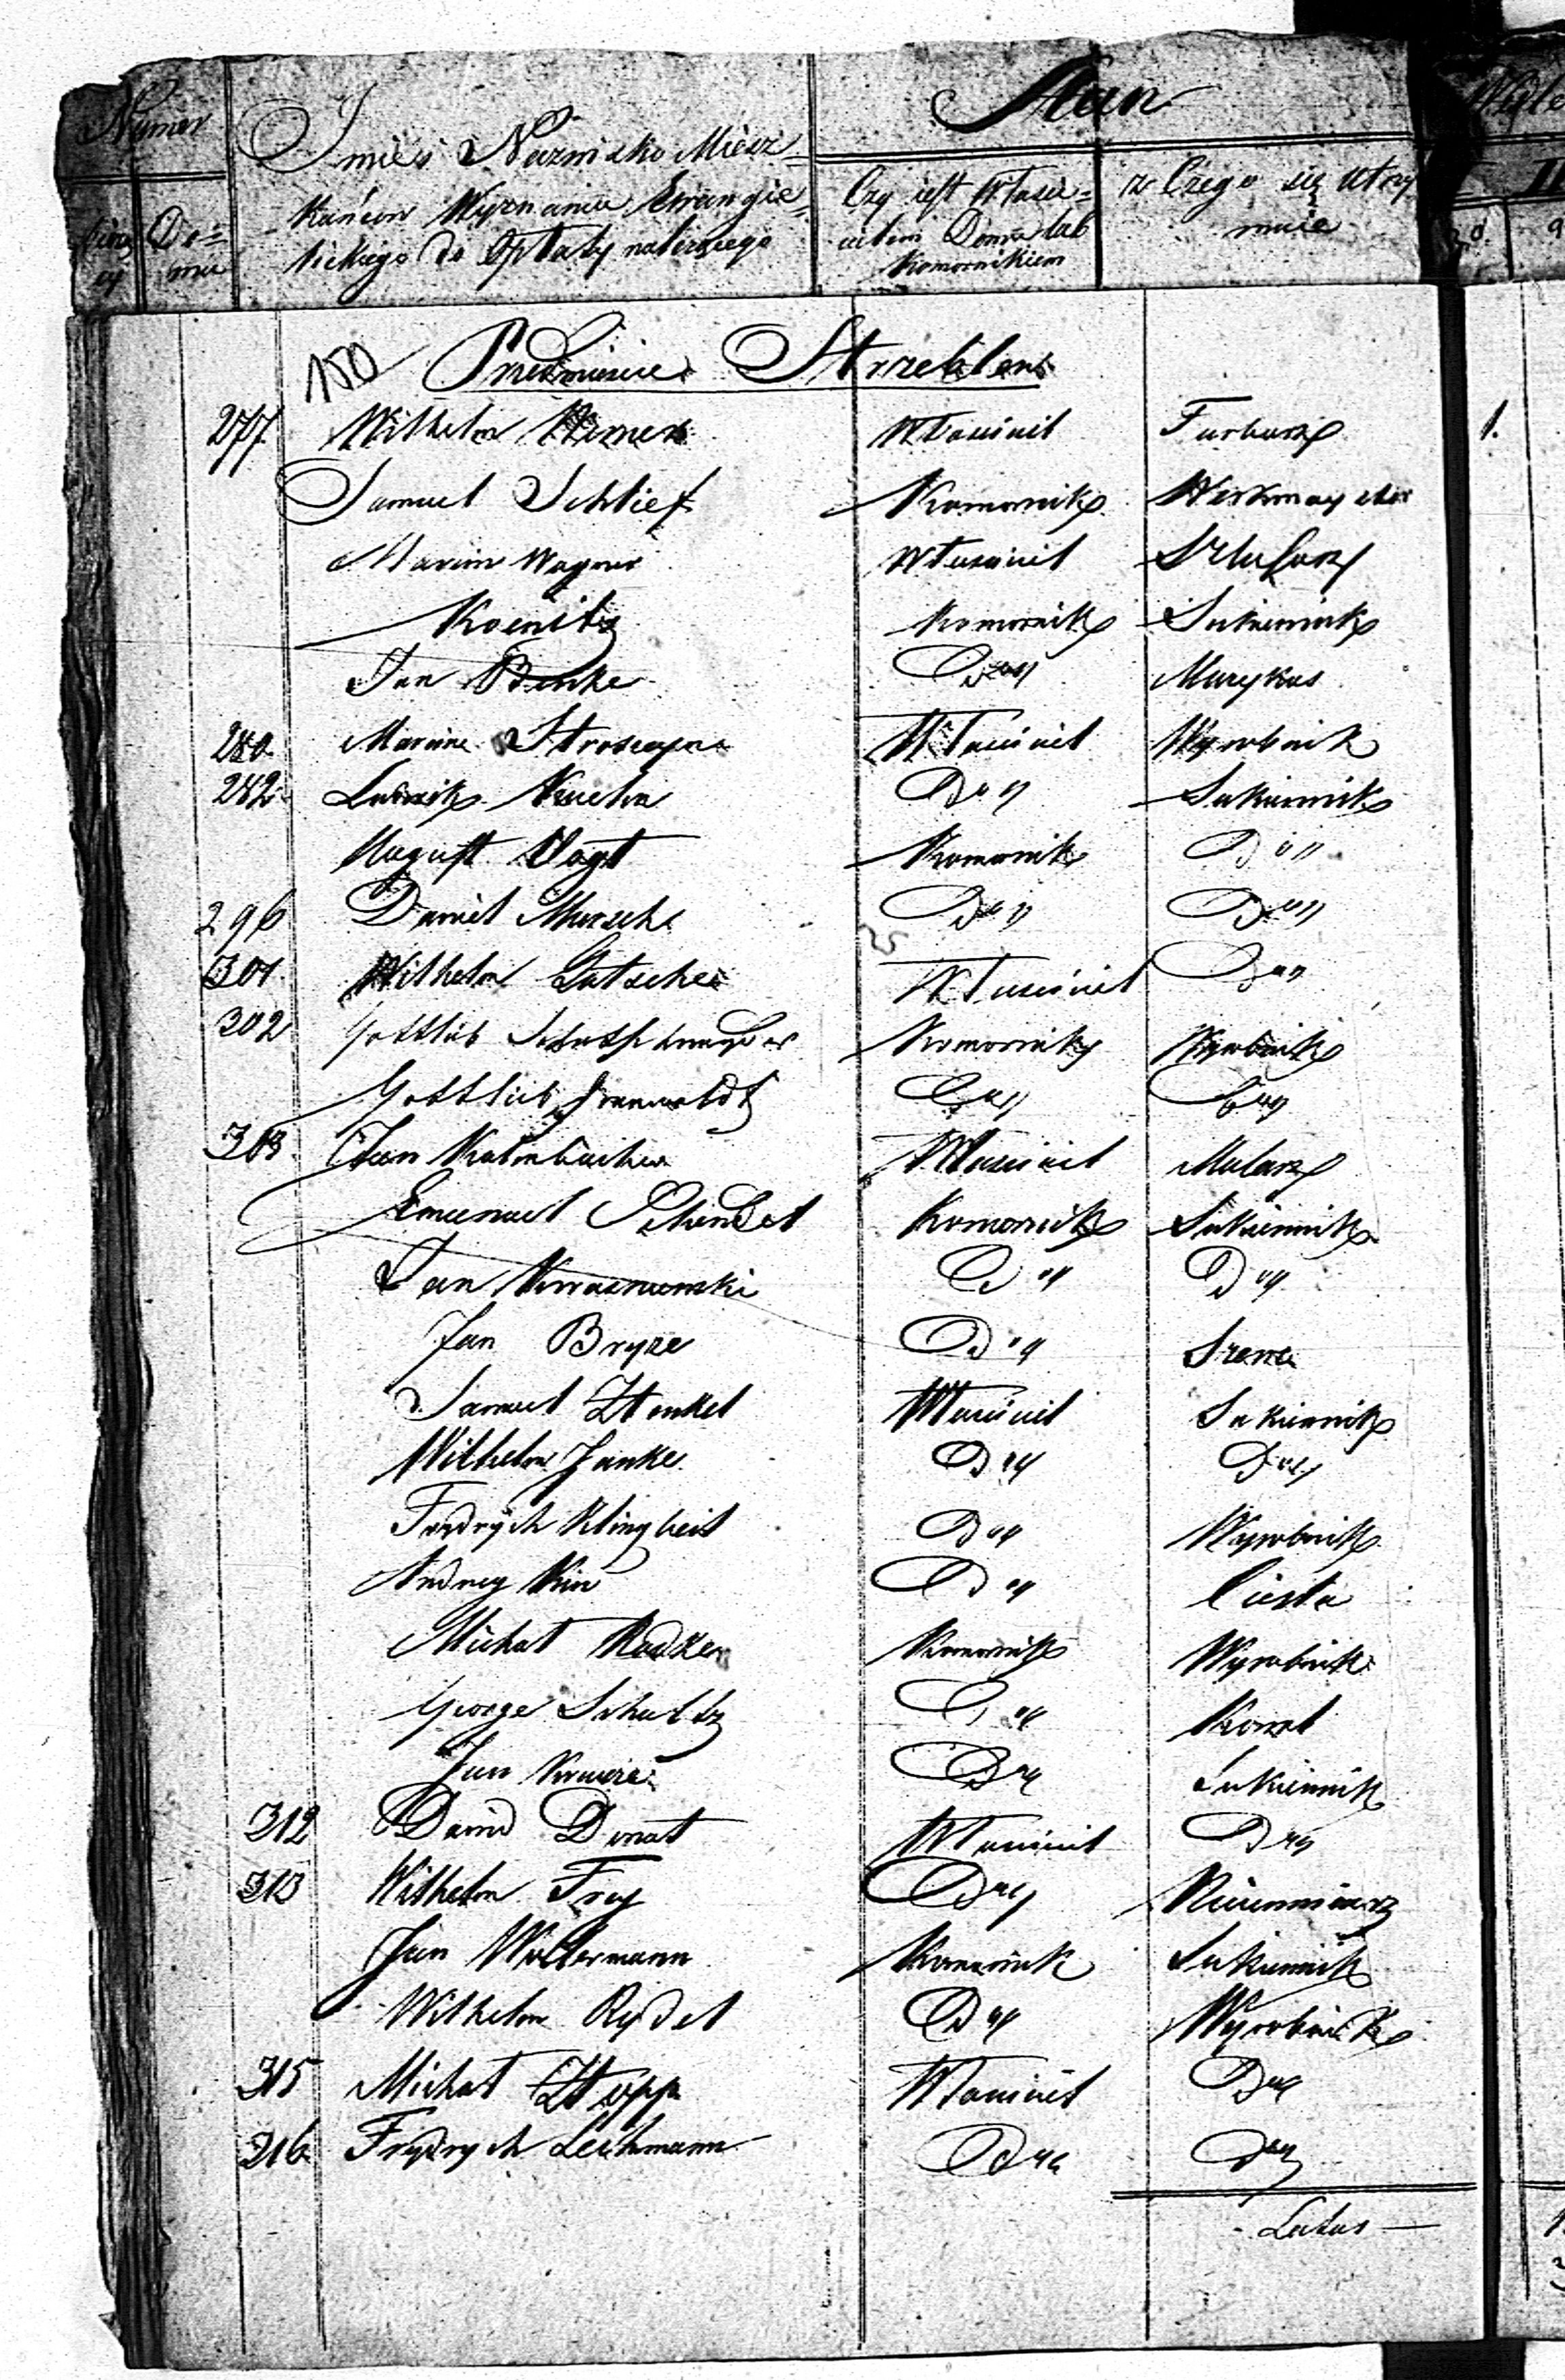 Numer
Stan
Imie i Nazwisko Miesz=
kańcow Wyznania Ewangie=
lickiego do Opłaty należącego
Do=
mu
Czy iest Właści=
cielem Domu lub
Komornikiem
z Czego się utrzy
muie
150 Przedmieście Strzeblew
277 Wilhelm Werner Właściciel Farbarz
Samuel Schlief Komornik Werkmayster
Marcin Wagner Właściciel Szlusarz
Koenitz Komornik Sukiennik
Jan Benke Do " Muzykus
280 Marcin Właściciel Wyrobnik
282 Ludwik Do " Sukiennik
August Vogt Komornik Do "
296 Daniel Mursche Do " Do "
301 Wilhelm Gutsche Właściciel Do "
302 Gottlieb Komornik Wyrobnik
Gottlieb Do " Do "
303 Jan Kalmbacher Właściciel Malarz
Emanuel Schendel Komornik Sukiennik
Jan Kwasniewski Do " Do "
Jan Bryze Do " Szewc
Samuel Henkel Właściciel Sukiennik
Wilhelm Janke Do " Do "
Frydrych Klingbeil Do " Wyrobnik
Andrzey Do " Cieśla
Michał Radke Komornik Wyrobnik
George Schultz Do " Kowal
Jan Krauze Do " Sukiennik
312 Dawid Donat Właściciel Do "
313 Wilhelm Frey Do "
Jan Woltermann Komornik Sukiennik
Wilhelm Rydel Do " Wyrobnik
315 Michał Hopp Właściciel Do "
316 Frydrych Lechmann Do " Do "
Latus —
1.